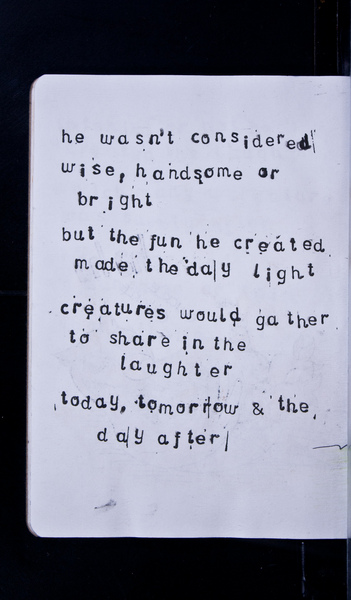 he wasn't considered
wise, handsome or
bright
but the fun he created
made the day light
creatures would gather
to share in the
laughter
today, tomorrow & the
day after